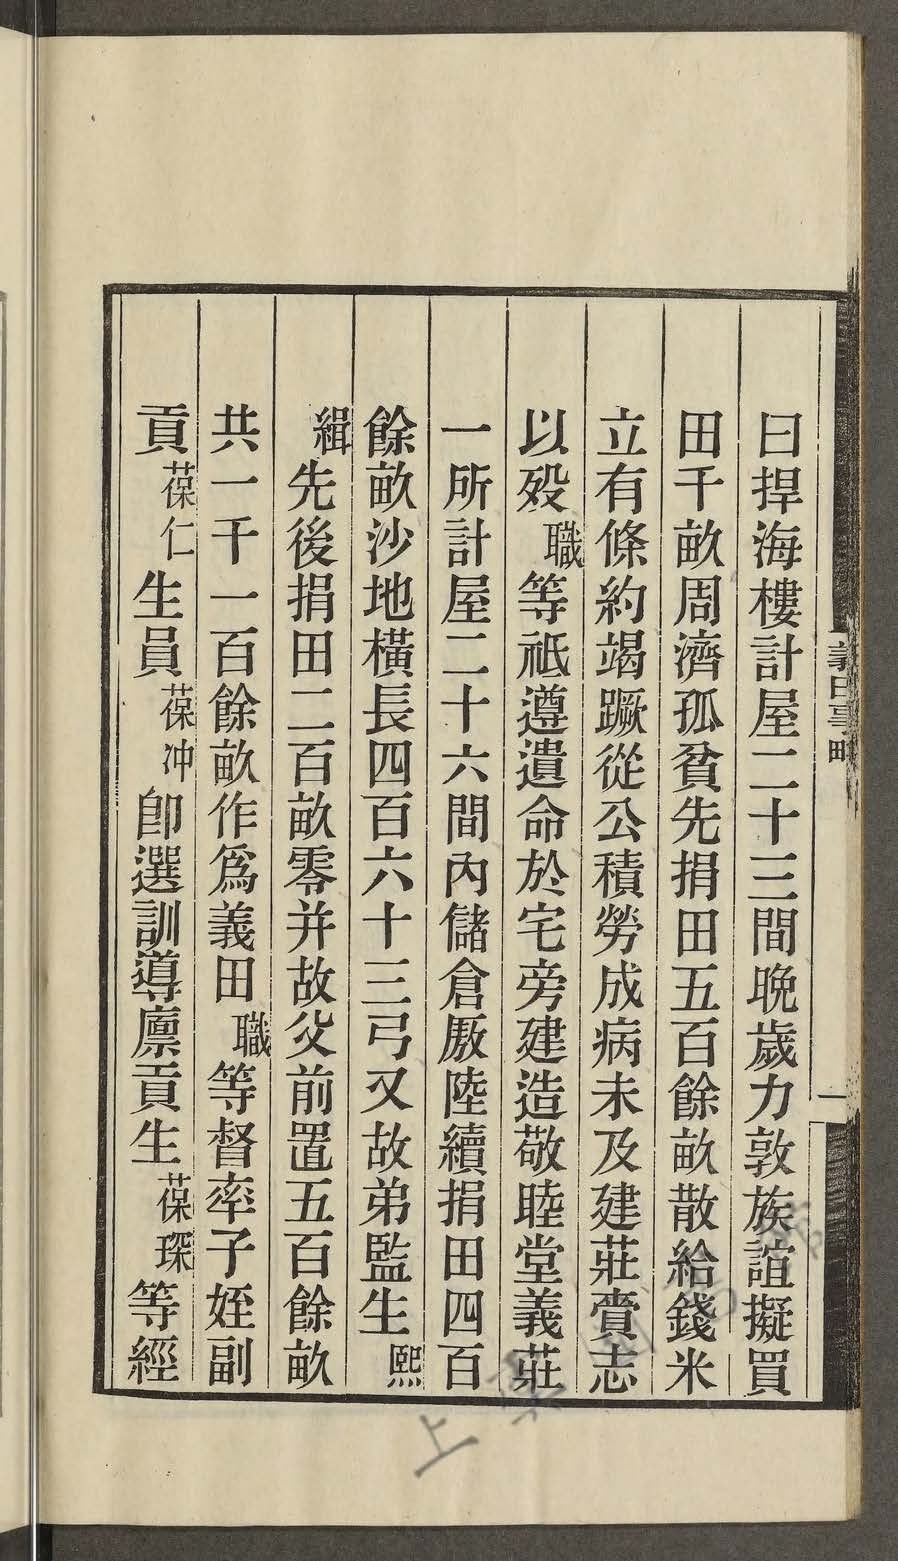 曰捍海樓計屋二十三間晩歲力敦族誼擬買
田千畝周濟孤貧先捐田五百餘畝散給錢米
立有條約竭蹶從公積勞成病未及建莊賷志
以歿職等祗遵遺命於宅旁建造敬睦堂義莊
一所計屋二十六間內儲倉厫陸續捐田四百
餘畝沙地橫長四百六十三弓又故弟監生熙
緝先後捐田二百畝零并故父前置五百餘畝
共一千一百餘畝作爲義田職等督率子姪副
貢葆仁生員葆冲卽選訓導廩貢生葆琛等經
義田事略
一